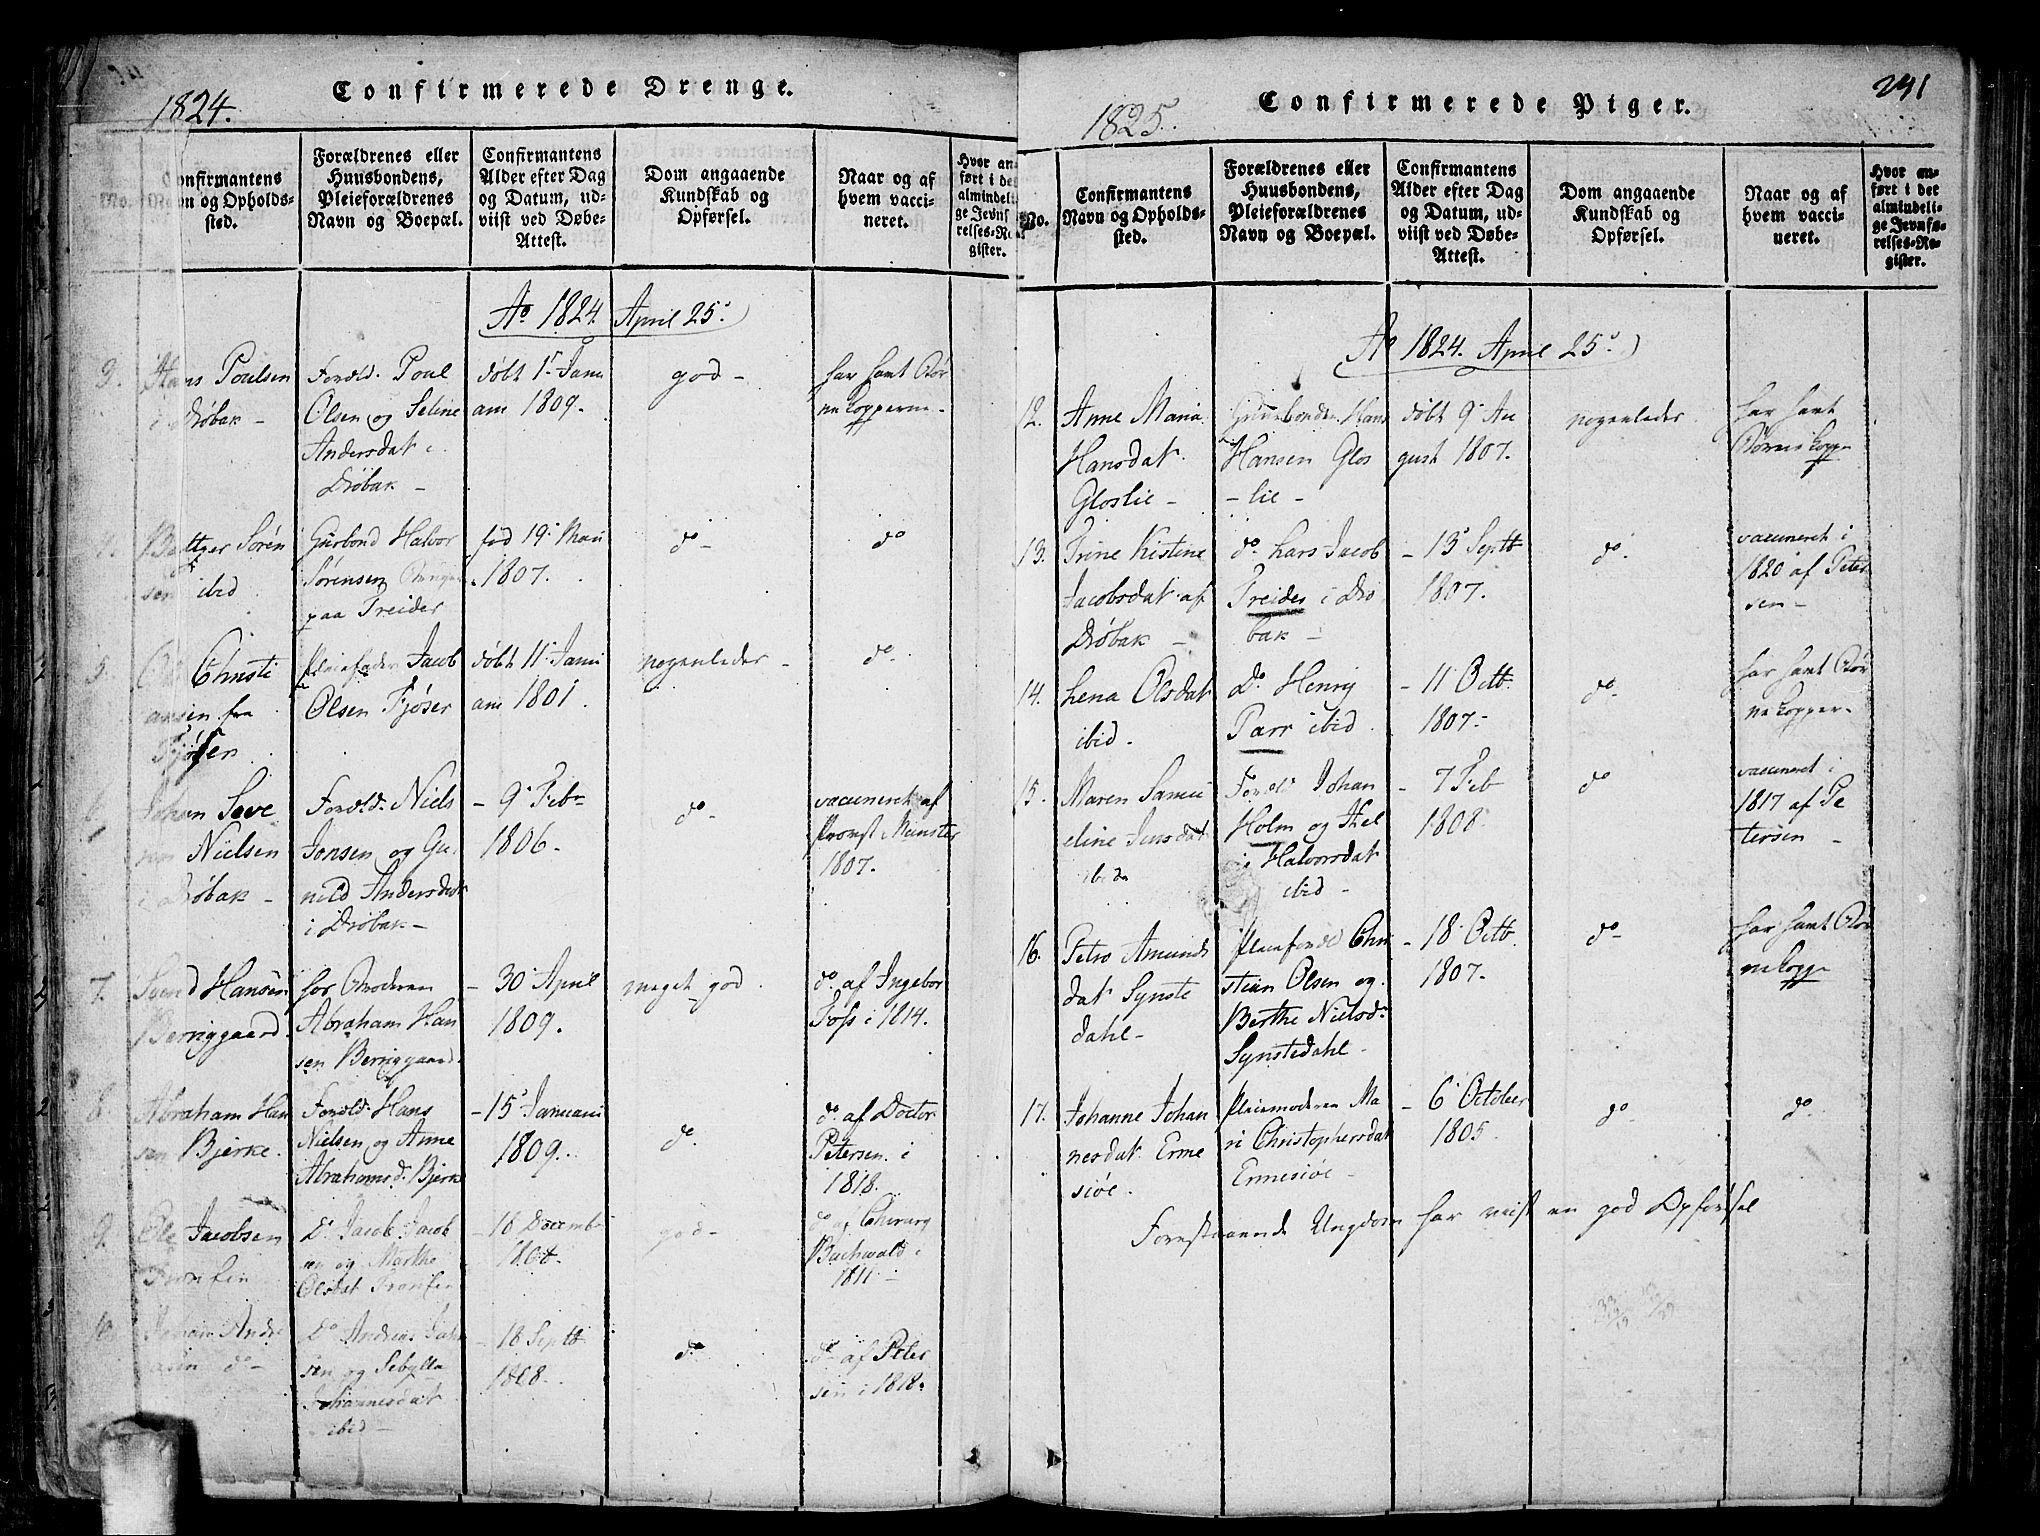 1824.
Confirmerede Drenge.
No.
Confirmantens
Navn og Opholds-
sted.
Forældrenes eller
Huusbondens,
Pleieforældrenes
Navn og Boepæl.
Confirmantens
Alder efter Dag
og Datum, ud-
viist ved Døbe-
Attest.
Dom angaaende
Kundskab og
Opførsel.
Naar og af
hvem vacci-
neret.
Hvor an-
ført i det
almindeli-
ge Jevnfø-
relses-Re-
gister.
Ao 1824 April 25.
3.
Hans Poulsen
i Drøbak -
Foræld. Poul
Olsen og Seline
Andersdat i
Drøbak -
døbt 1 Janu
ar 1809.
god -
har havt Bør
nekopperne.
4.
Bøttger Søren
sen ibid
Huusbond Halvor
Sørensen
paa Treider
fød 19. Mai
1807.
do -
do
5.
Ole Christi
ansen fra
Fjøser
Pleiefader Jacob
Olsen Fjøser
døbt 11 Janu
ar 1801.
nogenleder -
do
6.
Johan Seve
rin Nielsen
i Drøbak -
Foræld. Niels
Jonsen og Gu
nild Andersdat
i Drøbak -
- 9. Febr
1806.
do -
vaccineret af
Provst Münster
1807.
7.
Svend Hansen
Berriggaard.
hos Broderen
Abraham Han
sen Berriggaard.
- 30 April
1809.
meget god.
do af Ingebor
Foss i 1814.
8.
Abraham Han
sen Bjerke.
Foræld. Hans
Nielsen og Anne
Abrahamsd. Bjerke
- 15 Januari
1809.
do.
do af Doctor
Petersen i
1818.
9.
Ole Jacobsen
Fronfin
Do Jacob Jacob
sen og Marthe
Olsdat Fronfin
- 16 Decembr
1808.
god -
do af Chirurg
Buchwald i
1811 -
10.
Johan Andre
asen do -
Do Andreas Joh
sen og Sebylla
Johannesdat
ibid -
- 18 Septb
1808.
do
do af Peter
sen i 1818.
1825.
Confirmerede Piger.
241
No.
Confirmantens
Navn og Opholds-
sted.
Forældrenes eller
Huusbondens,
Pleieforældrenes
Navn og Boepæl.
Confirmantens
Alder efter Dag
og Datum, ud-
viist ved Døbe-
Attest.
Dom angaaende
Kundskab og
Opførsel.
Naar og af
hvem vacci-
neret.
Hvor an-
ført i det
almindeli-
ge Jevnfø-
relses-Re-
gister.
Ao 1824. April 25.
12.
Anne Maria
Hansdat.
Gloslie -
Huusbonden Hans
Hansen Glos
- lie -
døbt 9. Au
gust 1807.
nogenleder
har havt
Børnekopp
13.
Trine Kistine
Jacobsdat af
Drøbak -
do. hars Jacob
Treider i Drø
bak -
- 13 Septb
1807.
do.
vaccineret i
1820 af Peter
sen -
14.
Lena Olsdat
ibid.
Do. Henry
Parr ibid.
- 11 Octb
1807.
do -
har havt Bør
nekopper -
15.
Maren Samu
eline Jensdat
ibid
Foræld Johan
Holm og Kel
Halvorsdat
ibid -
- 7 Feb
1808.
do
vaccineret i
1817 af Pe
tersen -
16.
Petro Amunds
dat Synste
dahl -
Pleieforæld Chri
stian Olsen og
Berthe Nielsd.
Synstedahl -
- 18 Octb.
1807.
do -
har havt Bør
nekopp
17.
Johanne Johan
nesdat Erme
siøe.
Pleiemoderen Ma
ri Christophersdat
Ermesiøe -
- 6 October
1805.
do
do.
Forestaaende Ungdom har viist en god Opførsel